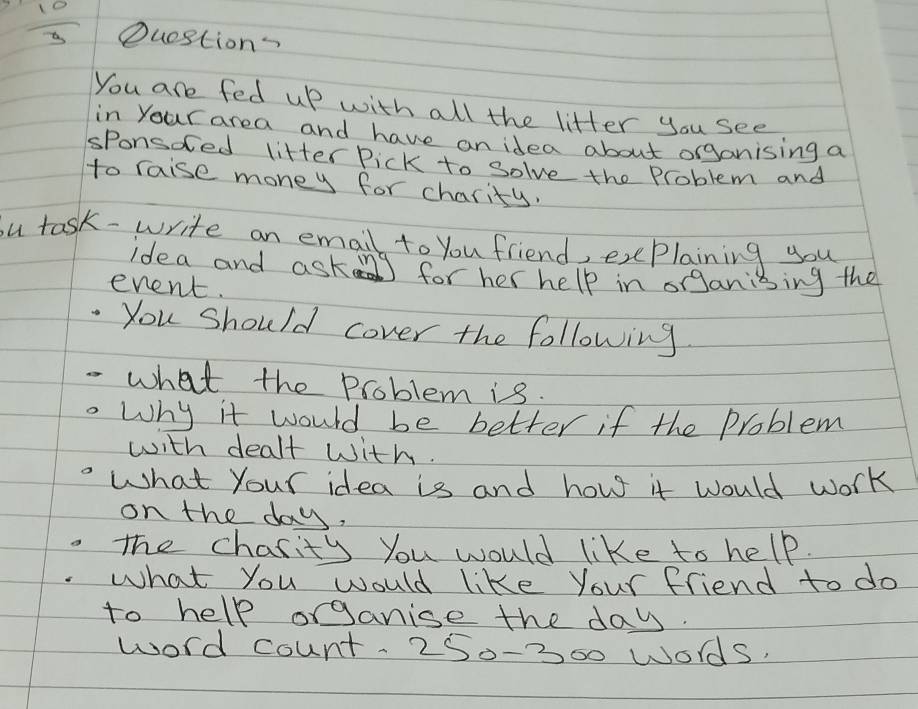 10
Question
You are fed up with all the litter you see
in Your area and have an idea about organising a
sponsored litter Pick to Solve the Problem and
to raise money for charity.
task - write an email to You friend, explaining you
idea and asking for her help in organising the
event.
• You Should cover the following
- what the Problem is.
• Why it would be better if the Problem
with dealt with.
• What Your idea is and how it would work
on the day.
• The charity You would like to help.
• What You would like Your friend to do
to help organise the day.
word count - 250-300 words.